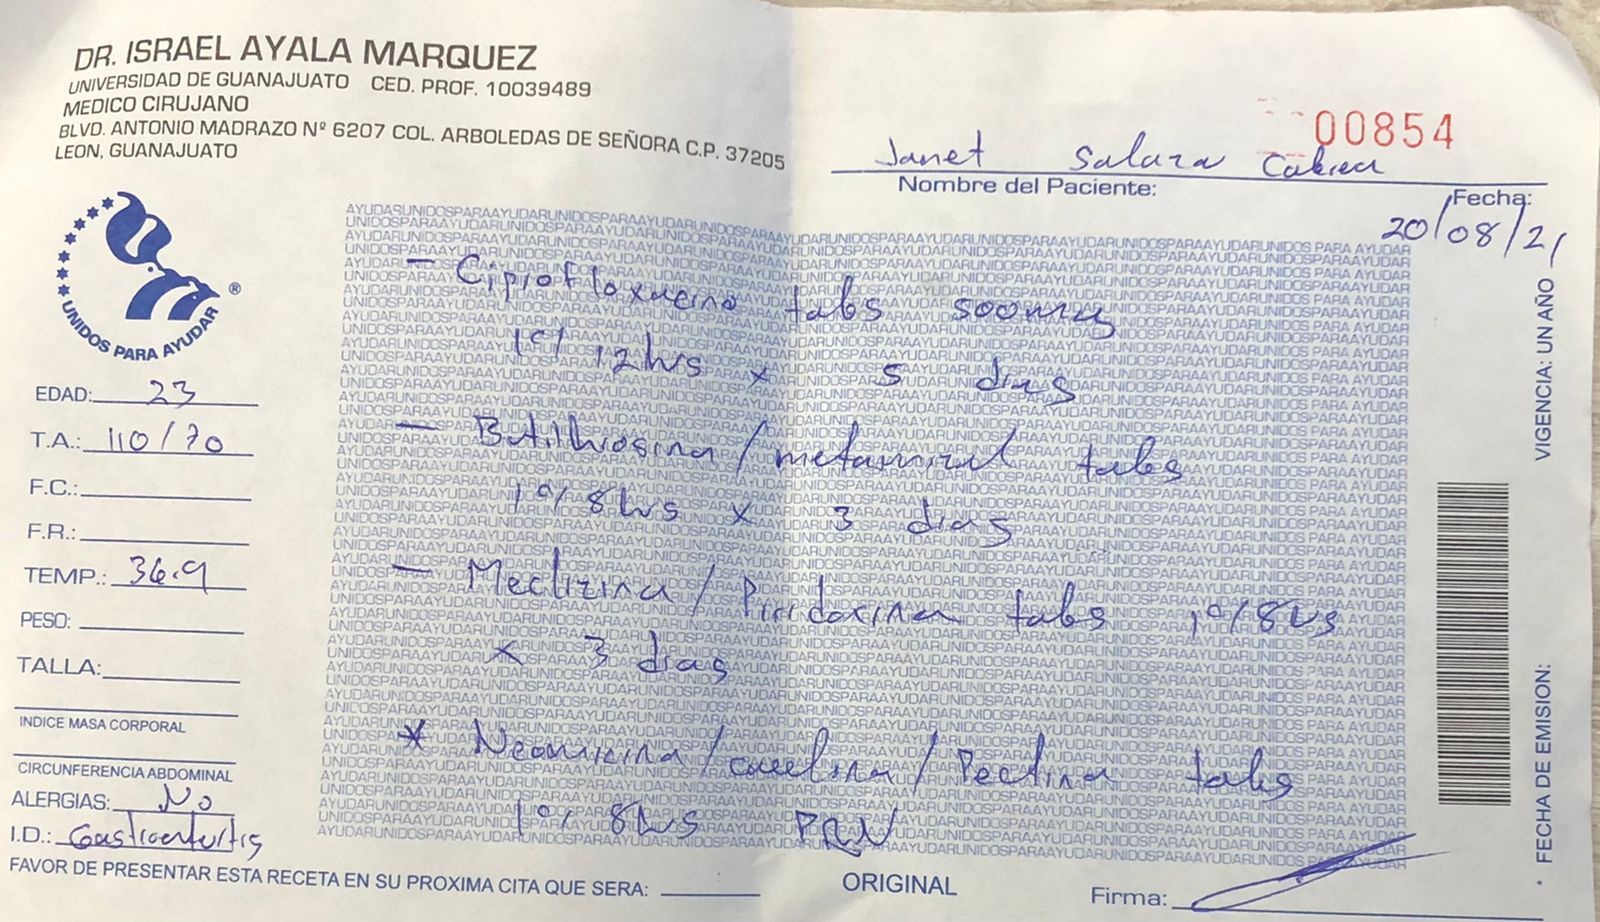 DR. ISRAEL AYALA MARQUEZ
UNIVERSIDAD DE GUANAJUATO CED. PROF. 10039489
MEDICO CIRUJANO
BLVD. ANTONIO MADRAZO Nº 6207 COL. ARBOLEDAS DE SEÑORA C.P. 37205
LEON, GUANAJUATO
00854
Janet Salaza
Nombre del Paciente:
Fecha:
20/08/21
UNIDOS PARA AYUDAR ®
EDAD: 23
T.A.: 110/70
F.C.:
F.R.:
TEMP.: 36.9
PESO:
TALLA:
INDICE MASA CORPORAL
CIRCUNFERENCIA ABDOMINAL
ALERGIAS: No
I.D.: Gastroenteritis
- Ciprofloxacino tabs 500mg
1 c/ 12hrs x 5 dias
- Butilhiosina/metamizol tabs
1 c/ 8hrs x 3 dias
- Meclizina/Piridoxina tabs 1 c/ 8hrs
x 3 dias
* Neomicina/caolina/Pectina tabs
1 c/ 8hrs PRN
VIGENCIA: UN AÑO
FECHA DE EMISION:
FAVOR DE PRESENTAR ESTA RECETA EN SU PROXIMA CITA QUE SERA:
ORIGINAL
Firma: